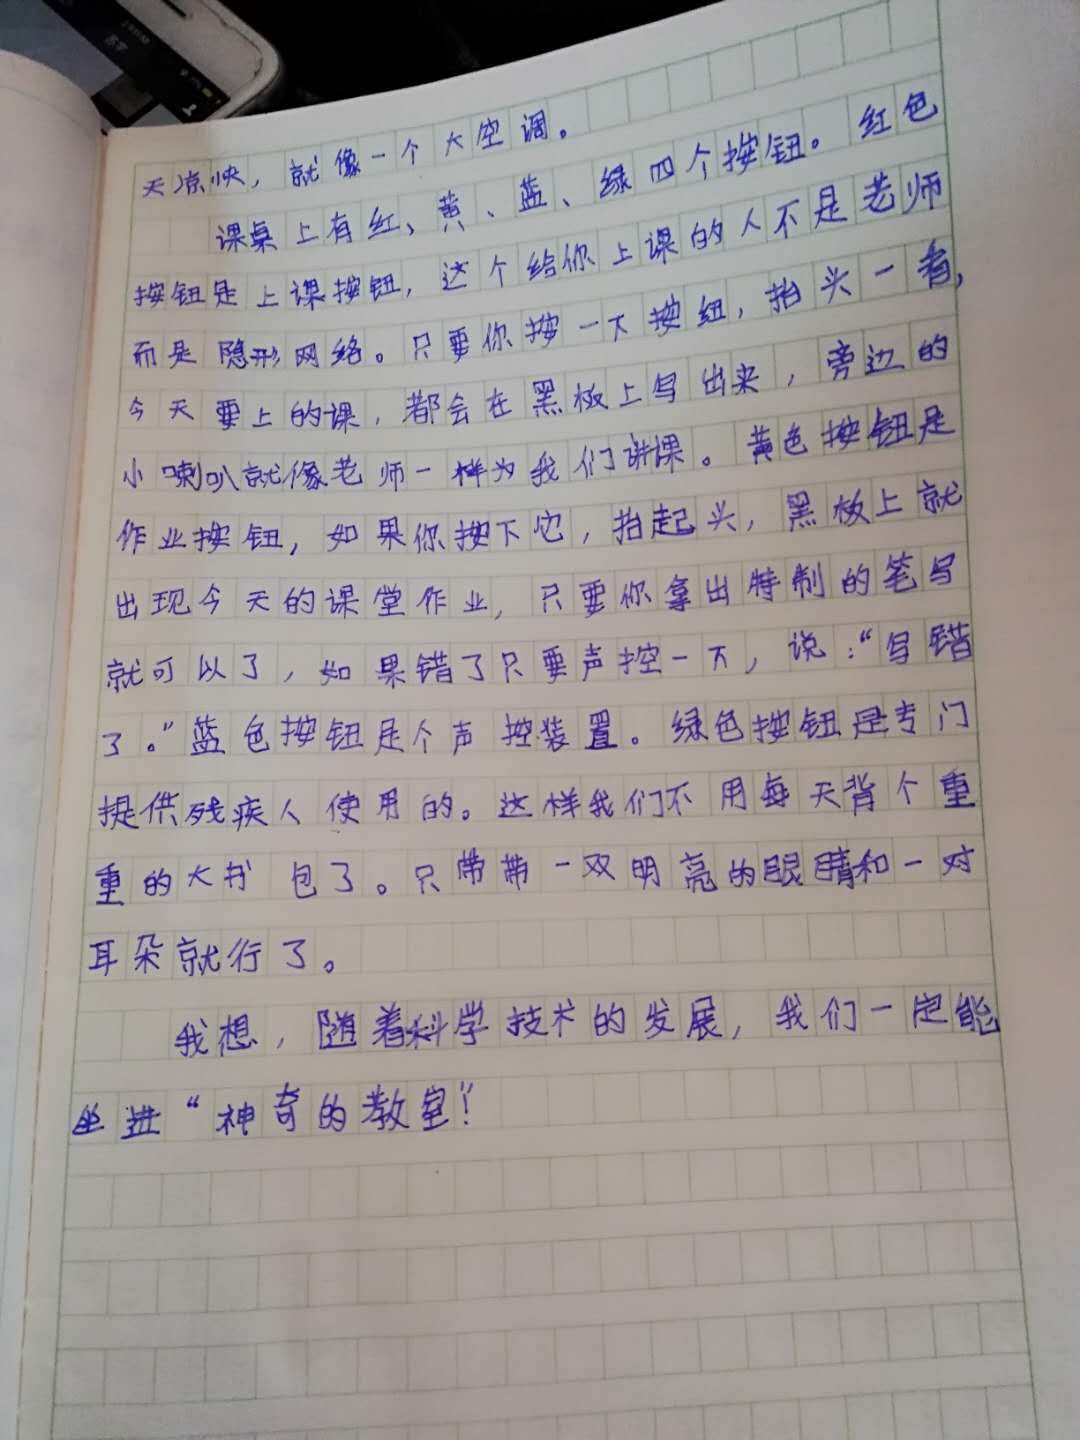 天凉快，就像一个大空调。
课桌上有红、黄、蓝、绿四个按钮。红色
按钮是上课按钮，这个给你上课的人不是老师
而是隐形网络。只要你按一下按纽，抬头一看，
今天要上的课，都会在黑板上写出来，旁边的
小喇叭就像老师一样为我们讲课。黄色按钮是
作业按钮，如果你按下它，抬起头，黑板上就
出现今天的课堂作业，只要你拿出特制的笔写
就可以了，如果错了只要声控一下，说：“写错
了。”蓝色按钮是个声控装置。绿色按钮是专门
提供残疾人使用的。这样我们不用每天背个重
重的大书包了。只带带一双明亮的眼睛和一对
耳朵就行了。
我想，随着科学技术的发展，我们一定能
坐进“神奇的教室”！